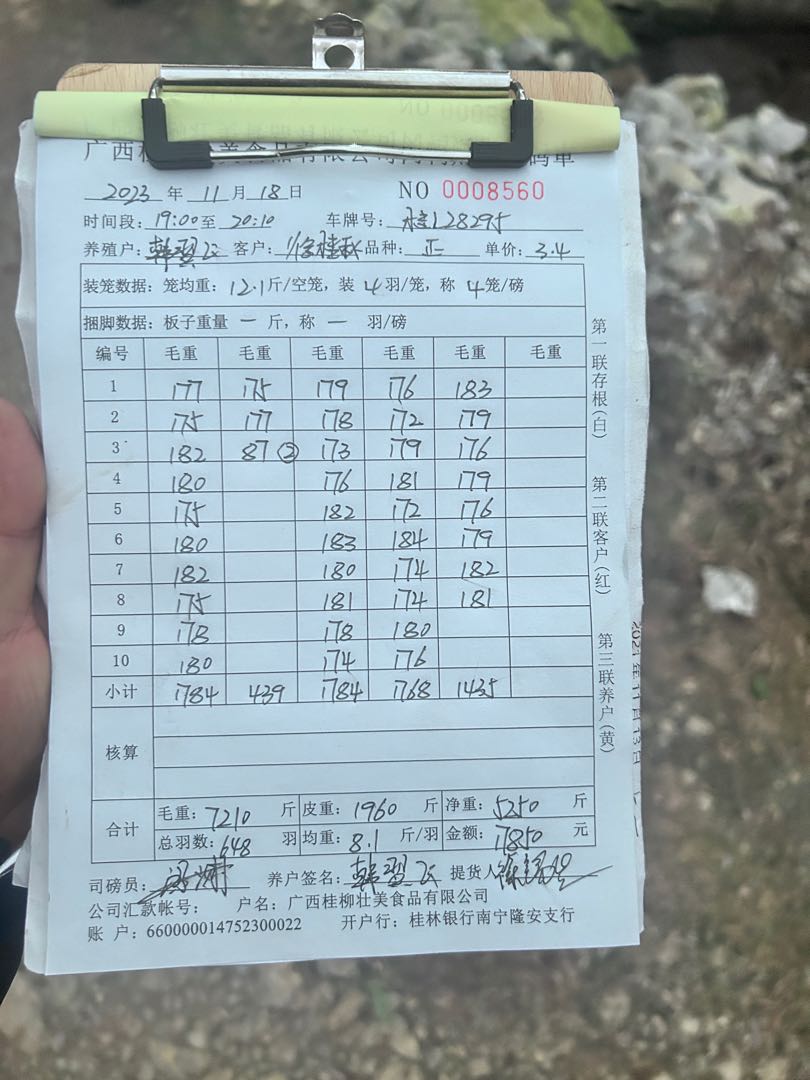 2023 年 11 月 18 日 NO 0008560
时间段: 19:00 至 20:10 车牌号: 桂128295
养殖户: 韩习飞 客户: 徐桂秋 品种: 正 单价: 3.4
装笼数据: 笼均重: 12.1 斤/空笼, 装 4 羽/笼, 称 4 笼/磅
捆脚数据: 板子重量 一 斤, 称 一 羽/磅
编号 毛重 毛重 毛重 毛重 毛重 毛重
1 177 175 179 176 183
2 175 177 178 172 179
3 182 87 ② 173 179 176
4 180 176 181 179
5 175 182 172 176
6 180 183 184 179
7 182 180 174 182
8 175 181 174 181
9 178 178 180
10 180 174 176
小计 1784 439 1784 1768 1435
核算
合计 毛重: 7210 斤 皮重: 1960 斤 净重: 5250 斤
总羽数: 648 羽 均重: 8.1 斤/羽 金额: 17850 元
司磅员: 养户签名: 提货人
公司汇款帐号: 户名: 广西桂柳壮美食品有限公司
账 户: 660000014752300022 开户行: 桂林银行南宁隆安支行
第一联存根(白)
第二联客户(红)
第三联养户(黄)